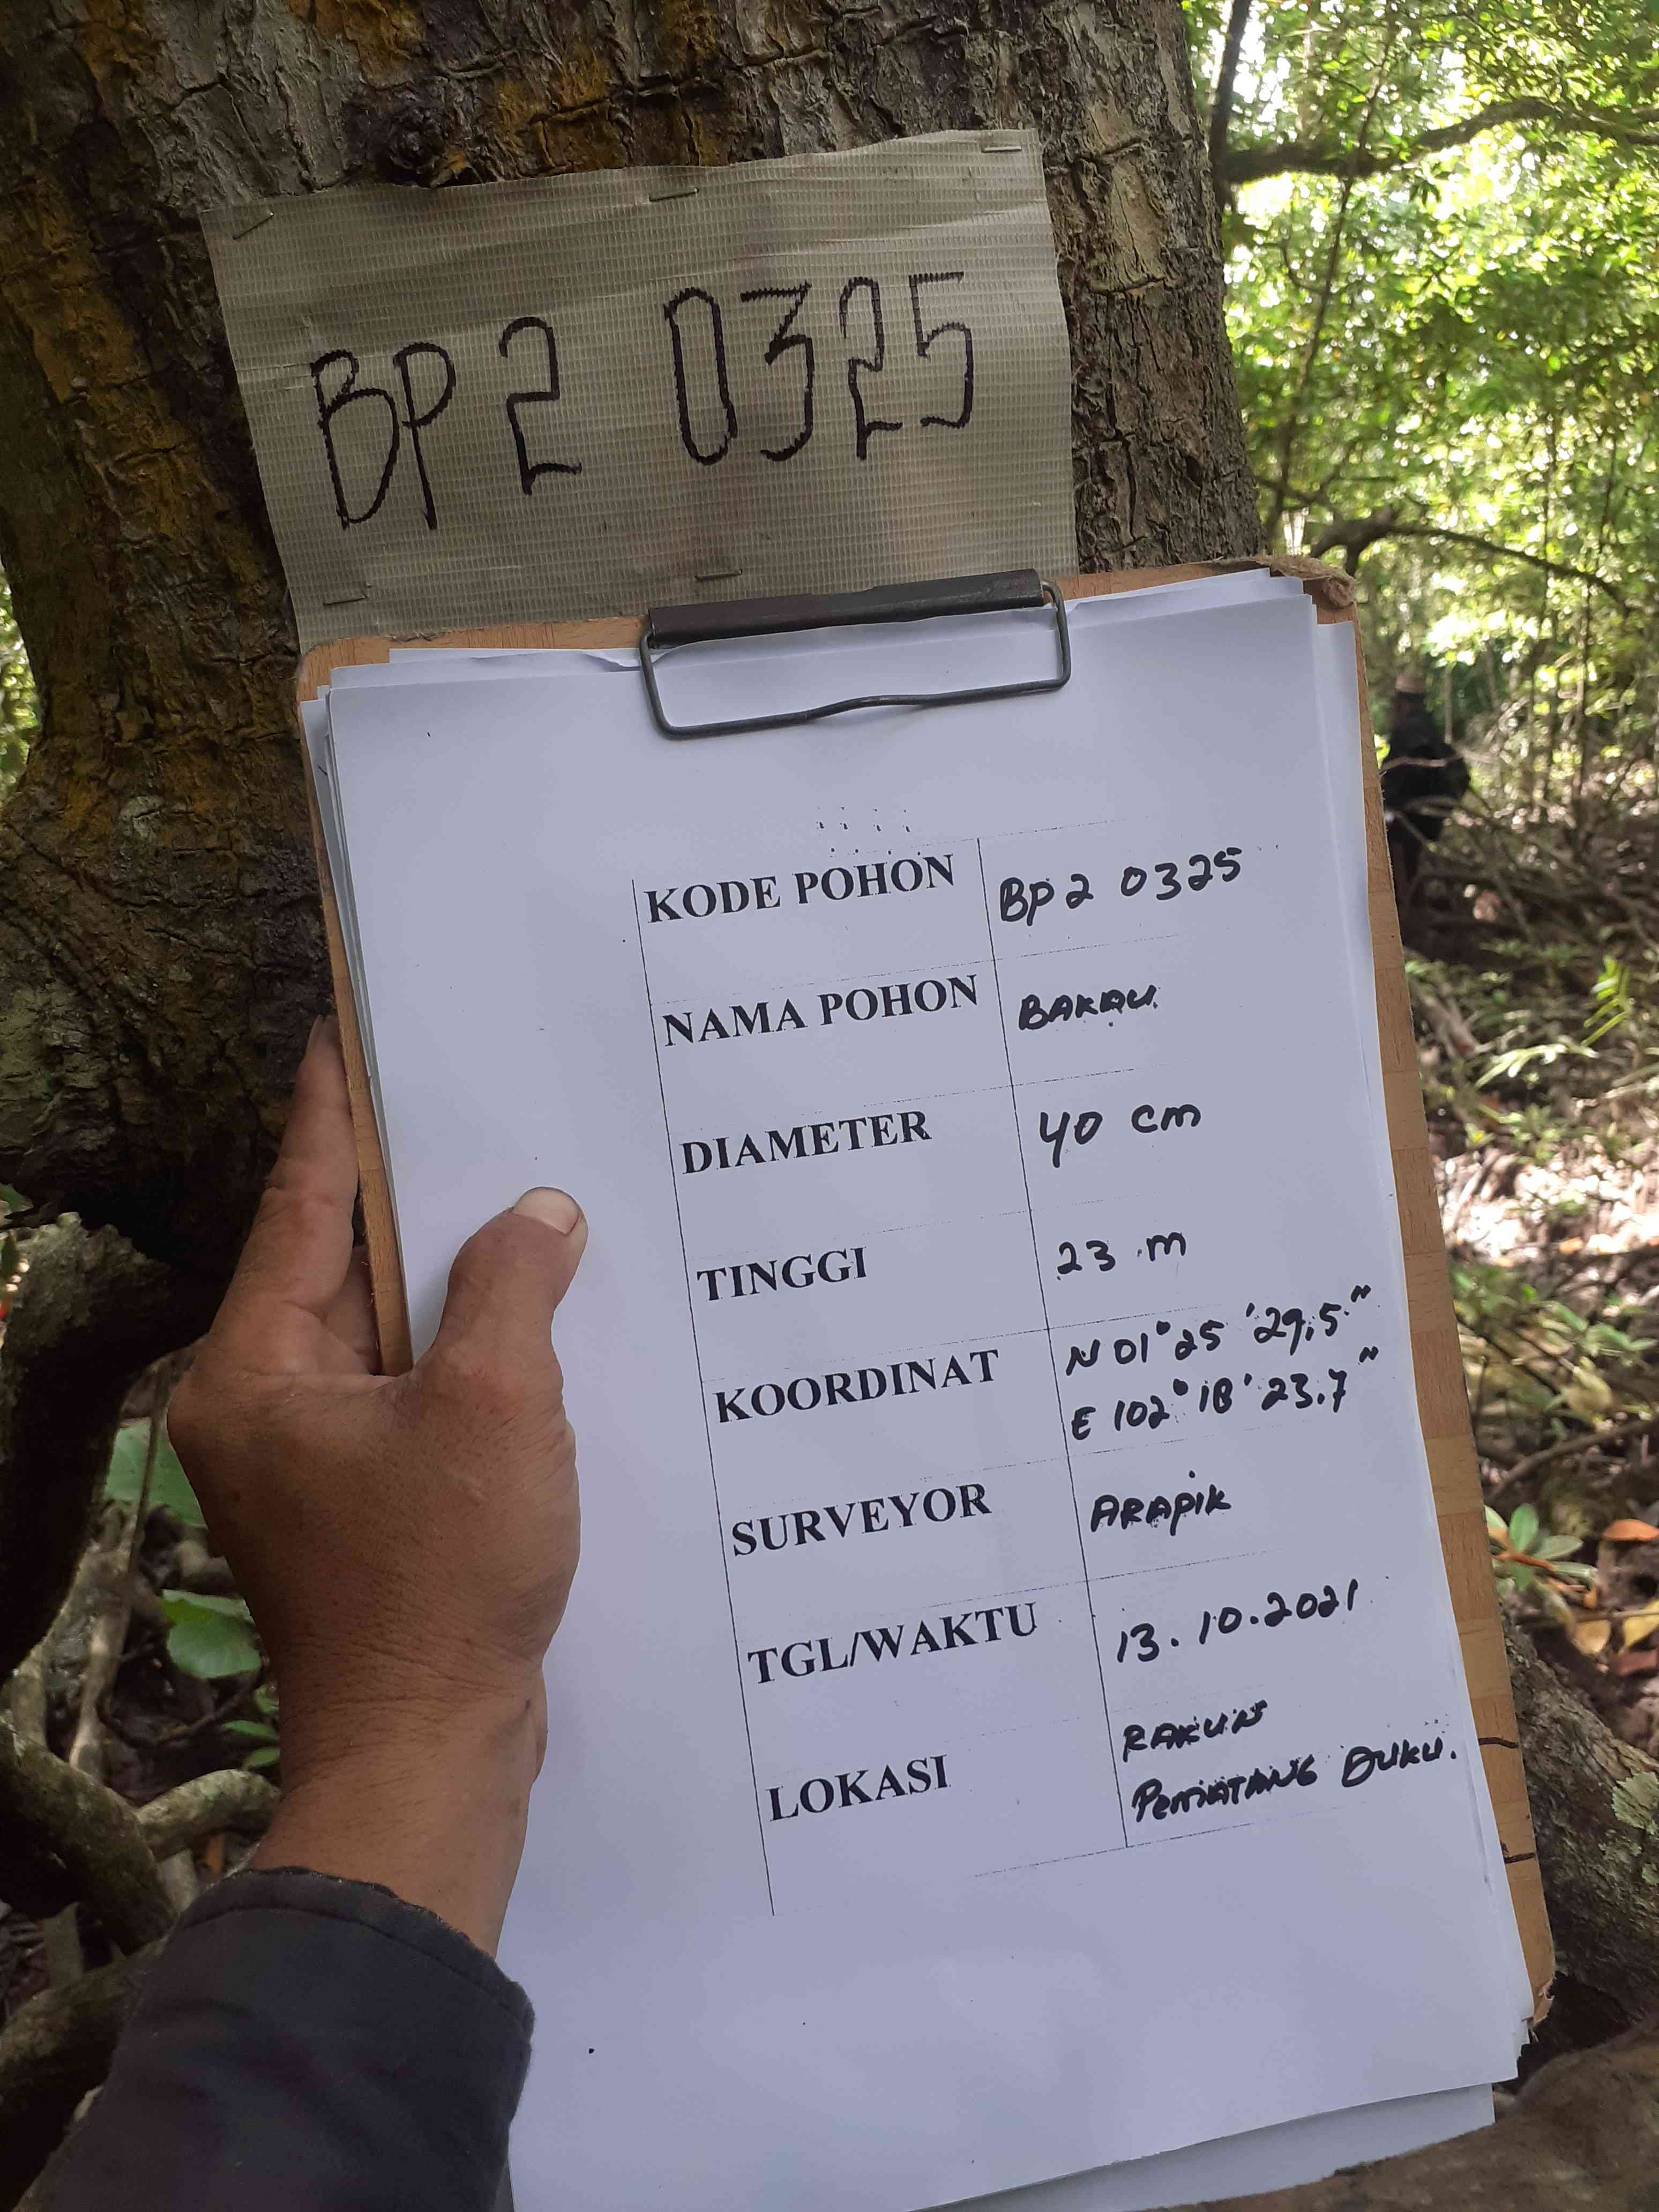 BP 2 0325
KODE POHON BP 2 0325
NAMA POHON BAKAU
DIAMETER 40 cm
TINGGI 23 m
KOORDINAT N 01° 25 ' 29,5"
E 102° 18' 23.7"
SURVEYOR ARAPIK
TGL/WAKTU 13.10.2021
LOKASI RAKUN
PEMATANG DUKU.